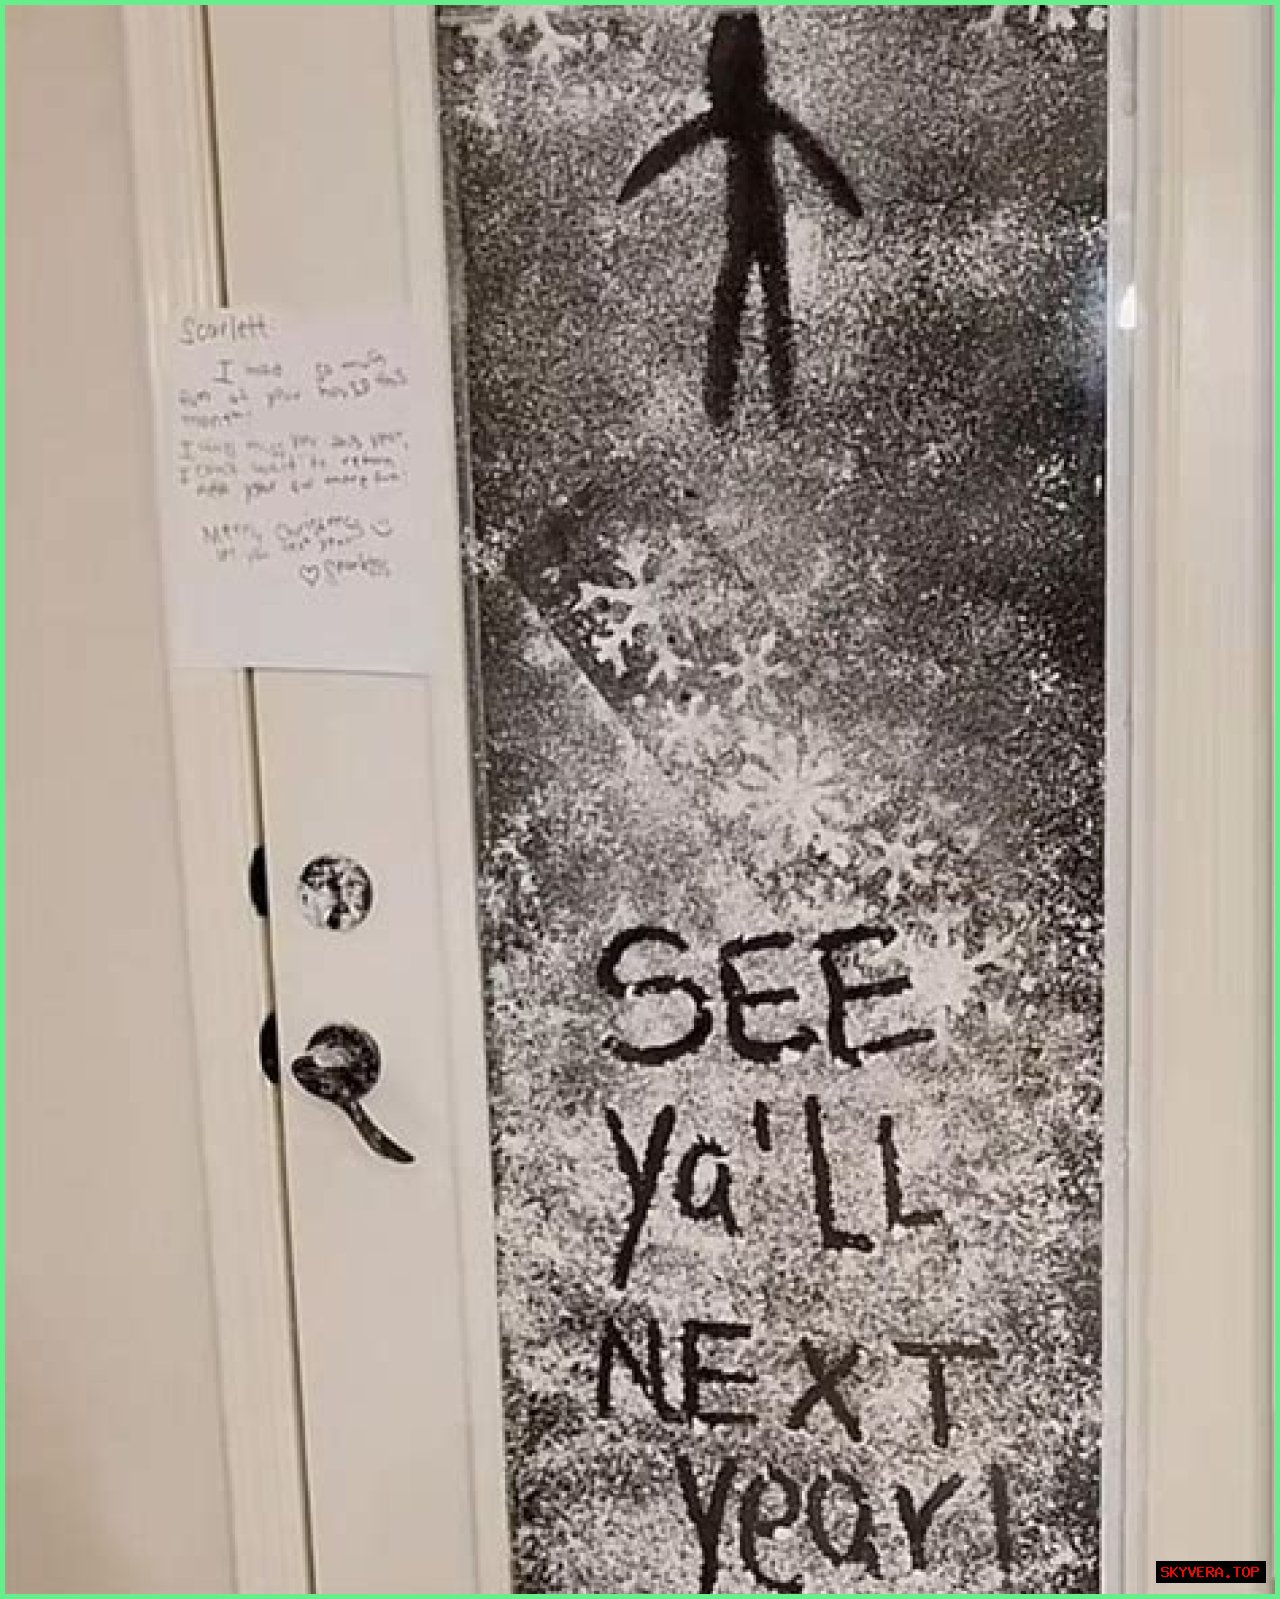 Scarlett
I had so much
fun at your house this
month!
I will miss you this year,
I can't wait to return
next year for more fun!
Merry Christmas
see you next year
♡ Sparkles
SEE
ya'LL
NEXT
year!
SKYVERA.TOP